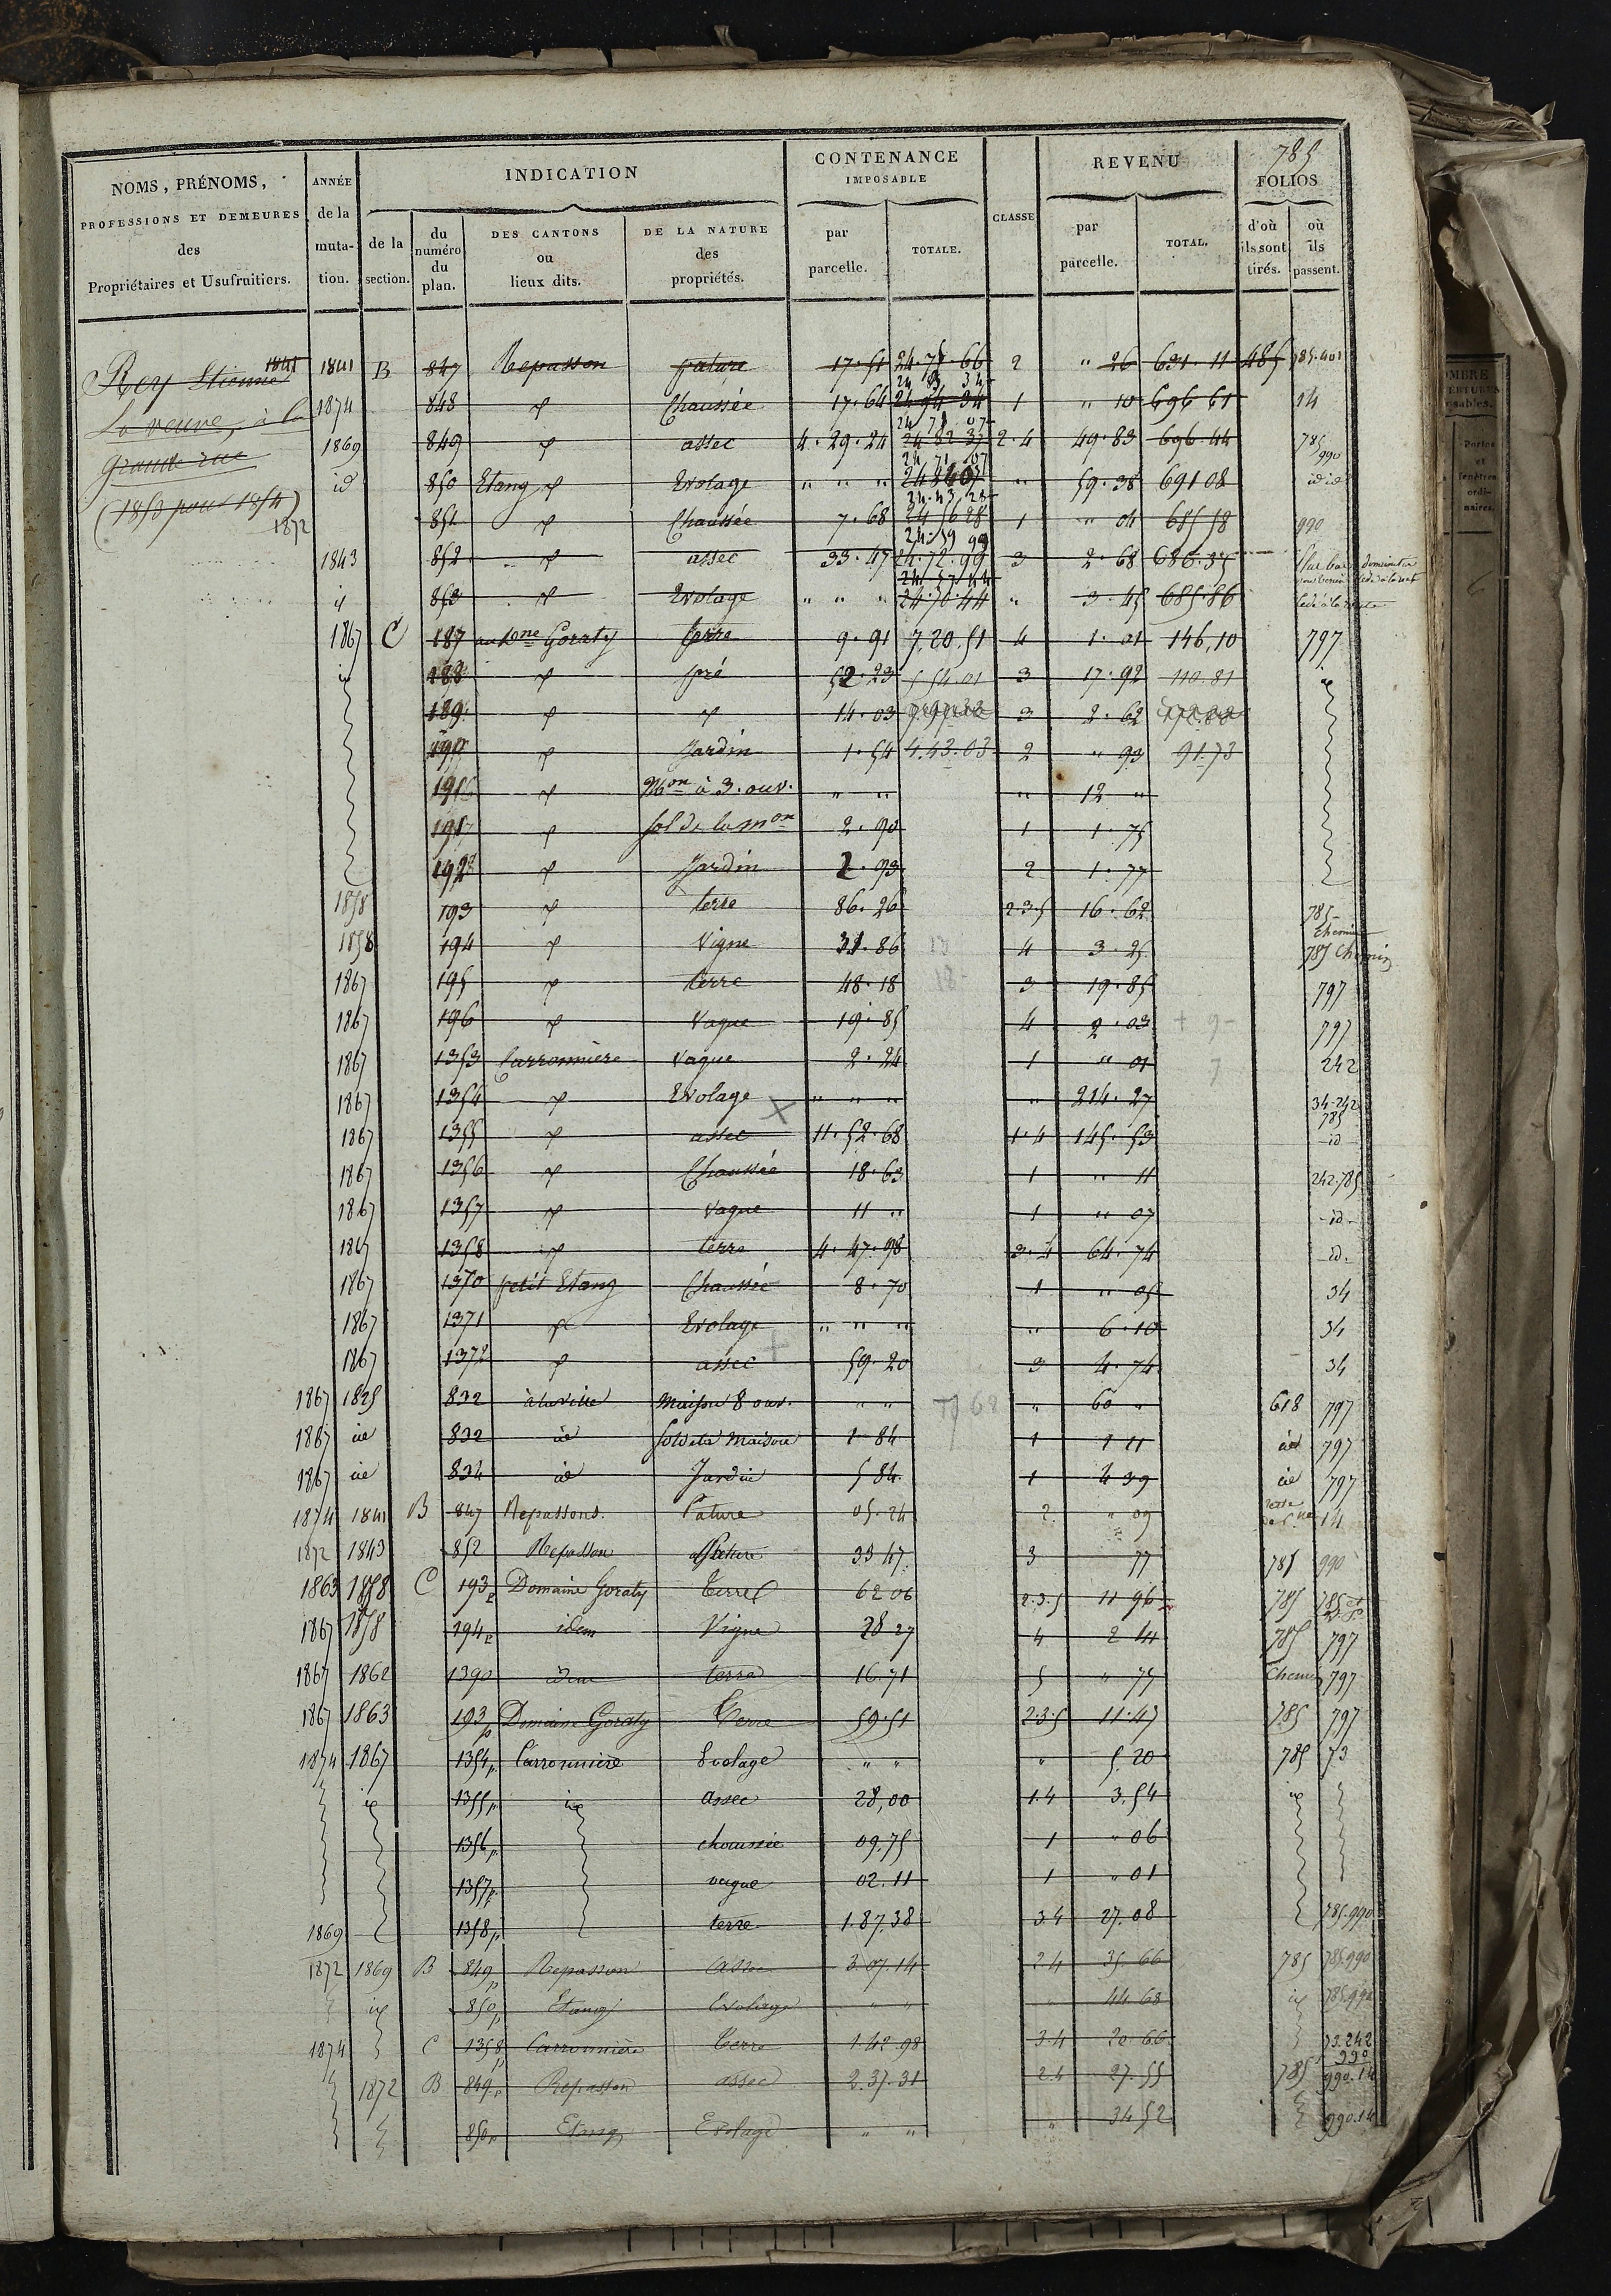 785
NOMS, PRÉNOMS, PROFESSIONS ET DEMEURES des Propriétaires et Usufruitiers.
ANNÉE de la mutation.
INDICATION
de la section.
du numéro du plan.
DES CANTONS ou lieux dits.
DE LA NATURE des propriétés.
CONTENANCE IMPOSABLE
par parcelle.
TOTALE.
CLASSE
REVENU
par parcelle.
TOTAL.
FOLIOS
d'où ils sont tirés.
où ils passent.
Rey Etienne 1841
La veuve, à la
grande rue
(1853 pour 1854)
1872
1841 B 847 Repasson pature 17.51 24.75.66 2 " 26 631.11 485 785.401
1874 848 Chaussée 17.64 1 " 10 696 61 14
1869 849 assec 4.29.24 2.4 49.83 696.44 785 990
id 850 Etang Evolage " " " " 59.38 691 08 id id
851 Chaussée 7.68 1 " 04 685 58 990
1843 852 assec 33.47 24.72.99 3 2.68 686.35
853 Evolage " " " 24.70.44 " 3.45 685.86
1867 C 187 Goraty terre 9.91 7.20.51 4 1.01 146,10 797
188 pré 52.23 5 54.01 3 17.92 110.81
189 14.03 3 2.62
190 Jardin 1.54 4.43.03 2 " 93 91.73
Mon à 3. ouv. " " " 12 "
sol de la mon 2.90 1 1.75
192 Jardin 2.93 2 1.77
1858 193 terre 86.26 2.3.5 16.62 785 chemin
1858 194 Vigne 31.86 4 3.25 785 Chemin
1867 195 terre 48.18 3 19.85 797
1867 196 Vague 19.85 4 2.03 797
1867 1353 Carronnière Vague 2.24 1 " 01 242
1867 1354 Evolage " " " " 214.27 34-242 785
1867 1355 assec 11.52.68 1.4 145.53 id
1867 1356 Chaussée 18.63 1 " 11 242.785
1867 1357 Vague 11 " 1 " 07 id
1867 1358 terre 4.47.98 3.4 64.74 id
1867 1370 petit Etang Chaussée 8.70 1 " 05 34
1867 1371 Evolage " " " " 6.10 34
1867 1372 assec 59.20 3 4.74 34
1867 1825 832 à la ville Maison 8 ouv. " " " 60 " 618 797
1867 id 832 id sol de la Maison 1 84 1 1 11 id 797
1867 id 834 id Jardin 5 84 1 4 39 id 797
1874 1841 B 847 Repassons. Pature 05.24 2 " 09 14
1872 1843 852 Repasson Pature 33 47 3 77 785 990
1863 1858 C 193 p Domaine Goraty Terre 62 06 2.3.5 11 96 785
1867 1858 194 p idem Vigne 28 27 4 2 44 785 797
1867 1862 1390 idem terre 16.71 5 " 75 Chemin 797
1867 1863 193 p Domaine Goraty Terre 59.51 2.3.5 11.47 785 797
1874 1867 1354 p Carronnière Evolage " " " 5.20 785 73
1355 p assec 28,00 1.4 3.54
1356 p chaussée 09.75 1 " 06
1357 p vague 02.11 1 " 01
1869 1358 p terre 1.87.38 3.4 27.08 785.990
1872 1869 B 849 p Repasson assec 3.07.14 2.4 35.66 785 785.990
850 p Etang Evolage " " " 44.68 785.990
1874 C 1358 p Carronnière Terre 1.42.98 3.4 20.66 73.242 990
1872 B 849 p Repasson assec 2.37.31 2.4 27.55 785 990.14
850 p Etang Evolage " " " 34 52 990.14